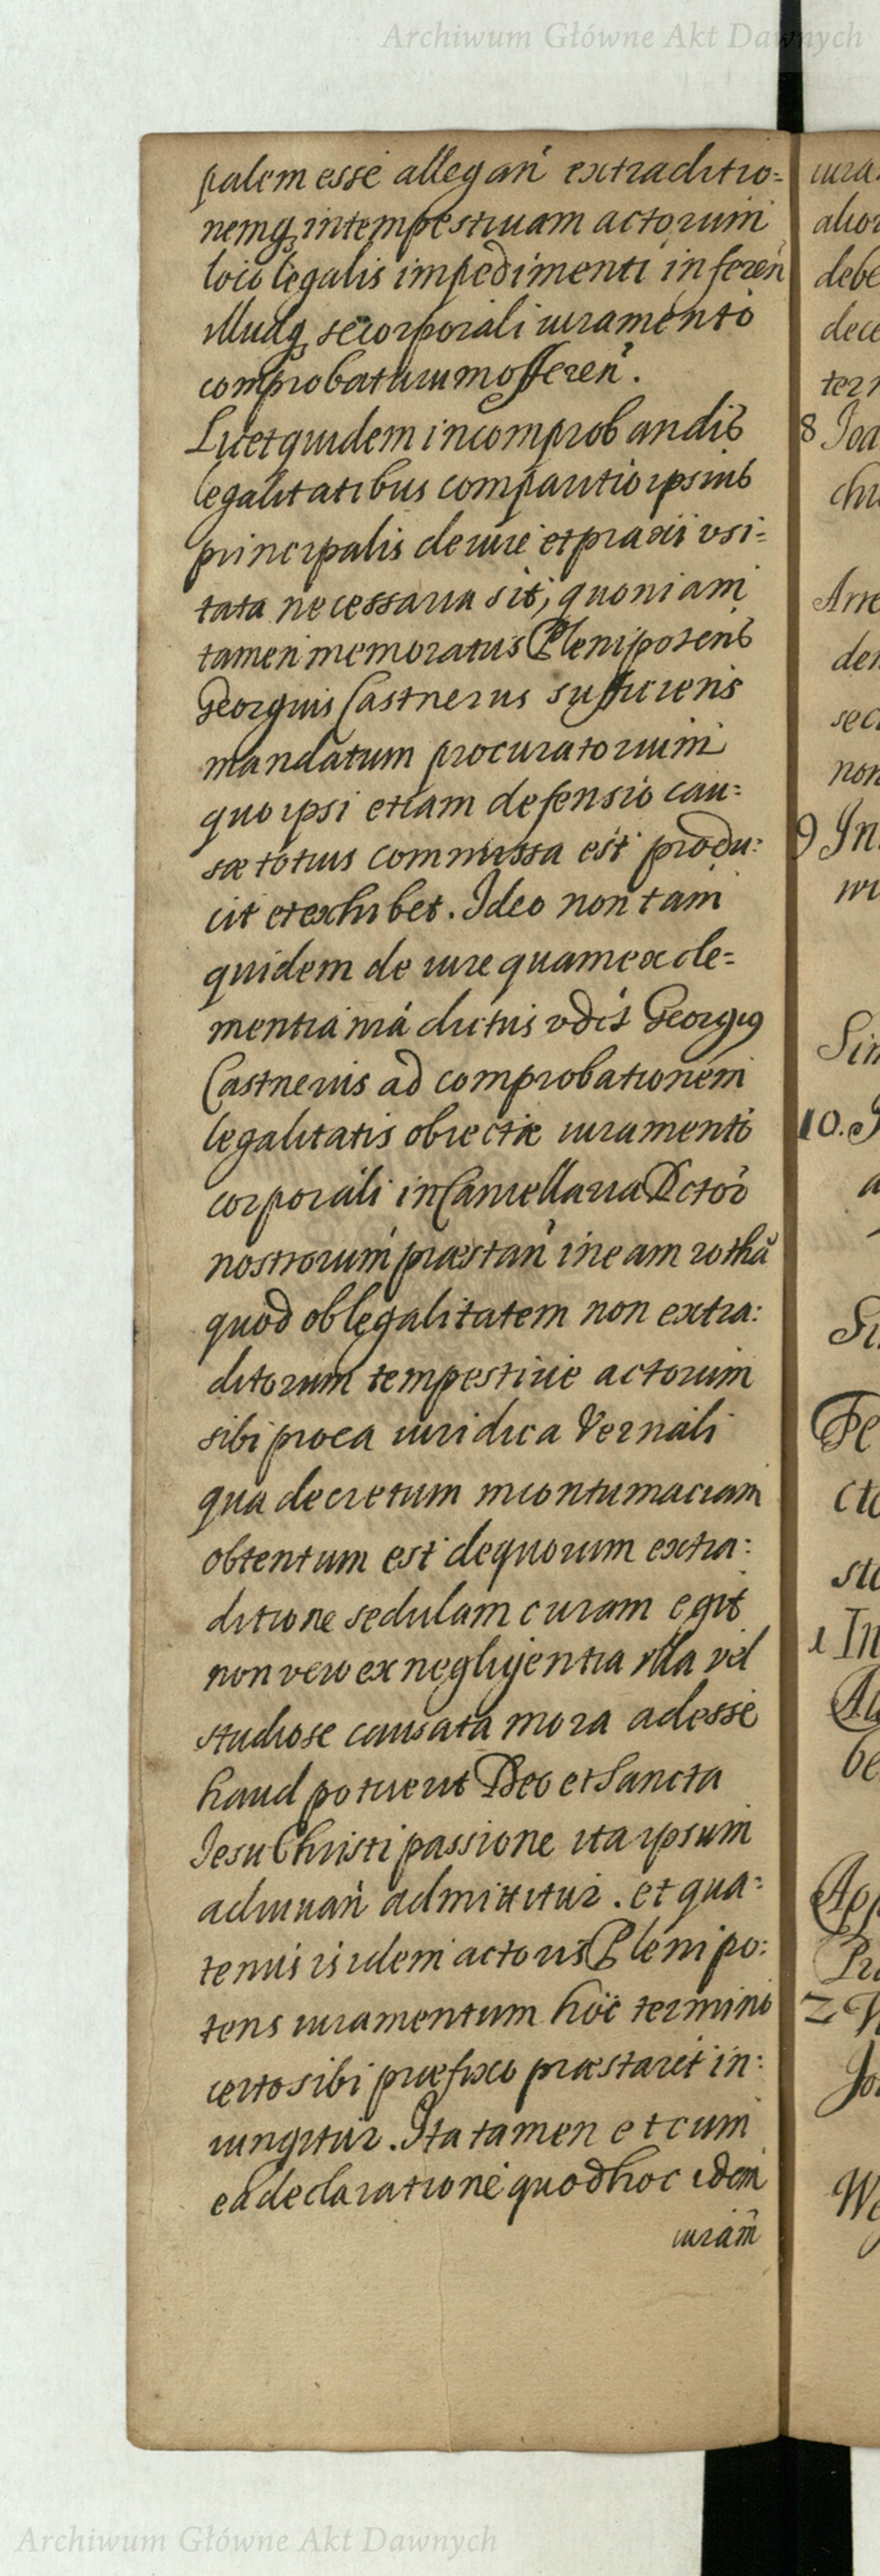 Archiwum Główne Akt Dawnych
palem esse allegań extraditio=
nemq; intempestiuam actorum
loco legalis impedimenti inferen̄
illudq; se corporali iuramento
comprobaturum offeren̄.
Licet quidem in comprobandis
legalitatibus comparitio ipsius
principalis de iure et praxi vsi=
tata necessaria sit, quoniam
tamen memoratus Plenipotens
Georgius Castnerus sufficiens
mandatum procuratorium
quo ipsi etiam defensio cau=
sæ totius commissa est produ=
cit et exhibet. Ideo non tam
quidem de iure quam ex cle=
mentia nrá dictus vdcs Georgiꝰ
Castnerus ad comprobationem
legalitatis obiectæ iuramento
corporali in Cancellaria Dctor
nostrorum præstan̄ in eam rothā
quod ob legalitatem non extra:
ditorum tempestiue actorum
sibi pro ea iuridica Vernali
qua decretum in contumaciam
obtentum est de quorum extra:
ditione sedulam curam egit
non vero ex negligentia illa vel
studiose causata mora adesse
haud potuerit Deo et Sancta
Iesu Christi passione ita ipsum
adiuuan̄ admittitur. et qua=
tenus is idem actoris Plenipo:
tens iuramentum hoc termino
certo sibi præfixo præstaret in:
iungitur. Ita tamen et cum
ea declaratione quod hoc idem
iuram̄
8
9 In
10.
1 In
2
Archiwum Główne Akt Dawnych